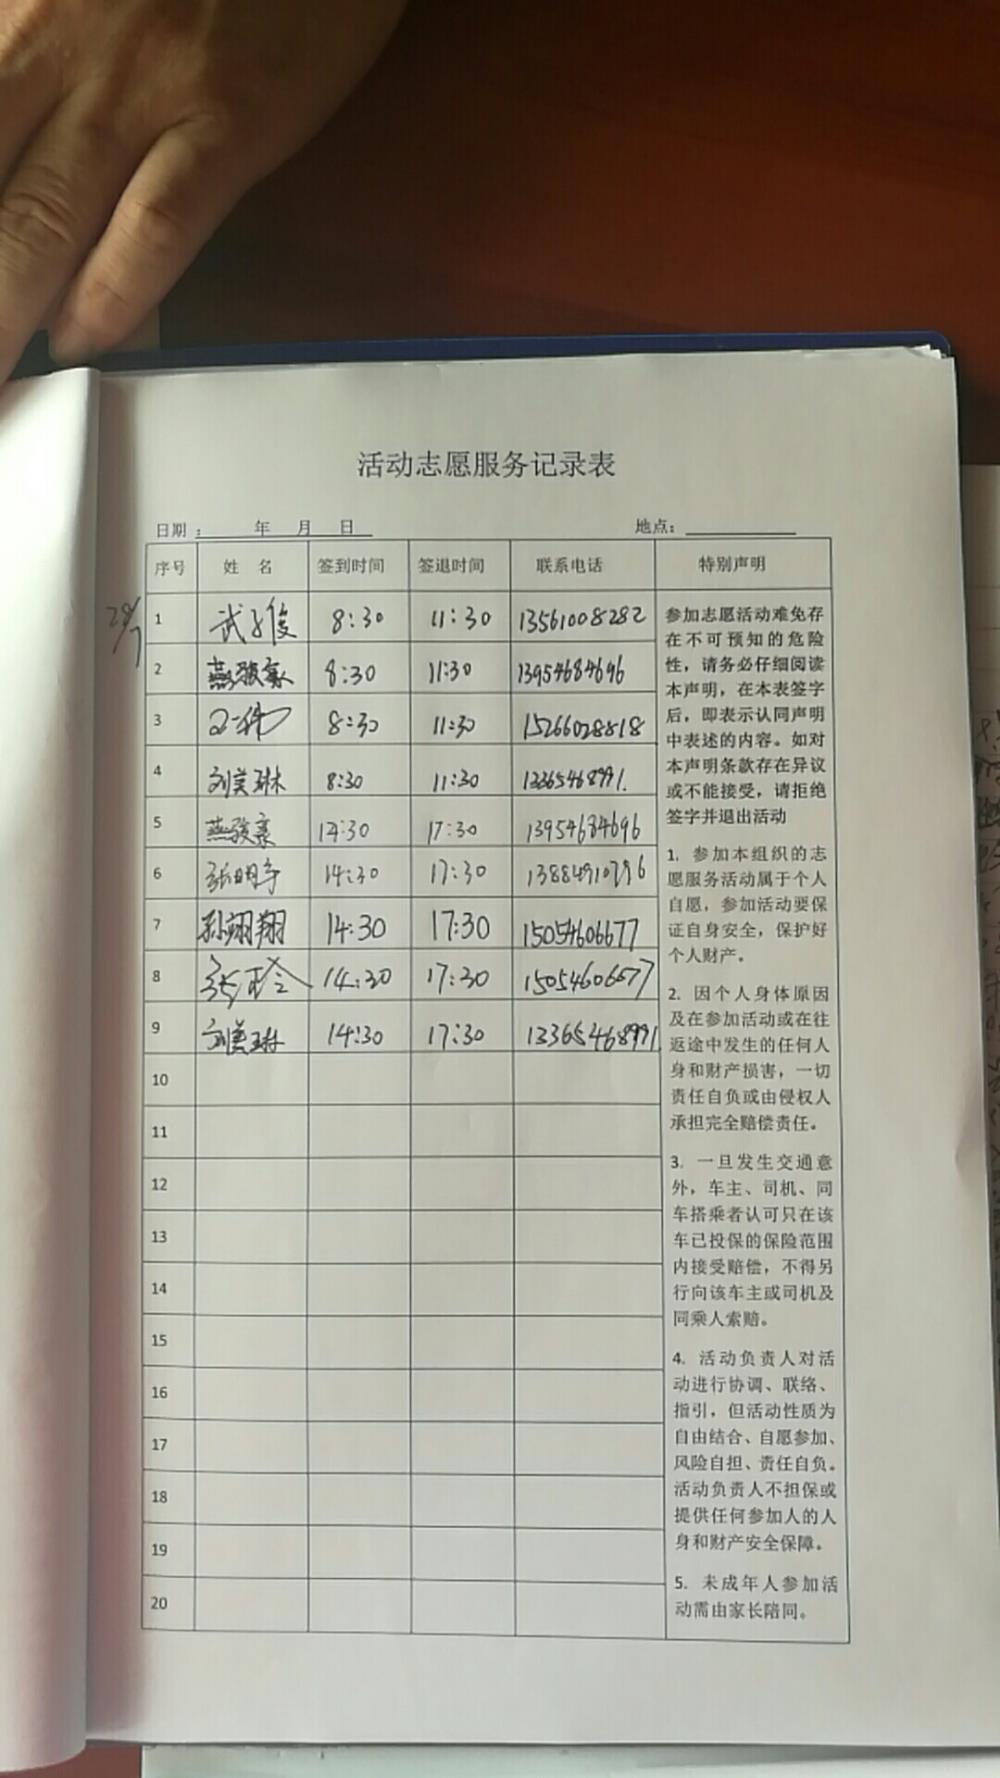 活动志愿服务记录表
日期：　　年　月　日　　地点：
序号　姓　名　签到时间　签退时间　联系电话　特别声明
28/7
1　武子俊　8:30　11:30　13561008282
2　燕骏豪　8:30　11:30　13954684696
3　8:30　11:30　15266028818
4　刘美琳　8:30　11:30　13365468991.
5　燕骏豪　14:30　17:30　13954684696
6　张明宇　14:30　17:30　13884910796
7　孙翊翔　14:30　17:30　15054606677
8　张玲　14:30　17:30　15054606677
9　刘美琳　14:30　17:30　13365468991
10
11
12
13
14
15
16
17
18
19
20
参加志愿活动难免存
在不可预知的危险
性，请务必仔细阅读
本声明，在本表签字
后，即表示认同声明
中表述的内容。如对
本声明条款存在异议
或不能接受，请拒绝
签字并退出活动
1. 参加本组织的志
愿服务活动属于个人
自愿，参加活动要保
证自身安全，保护好
个人财产。
2. 因个人身体原因
及在参加活动或在往
返途中发生的任何人
身和财产损害，一切
责任自负或由侵权人
承担完全赔偿责任。
3. 一旦发生交通意
外，车主、司机、同
车搭乘者认可只在该
车已投保的保险范围
内接受赔偿，不得另
行向该车主或司机及
同乘人索赔。
4. 活动负责人对活
动进行协调、联络、
指引，但活动性质为
自由结合、自愿参加、
风险自担、责任自负。
活动负责人不担保或
提供任何参加人的人
身和财产安全保障。
5. 未成年人参加活
动需由家长陪同。